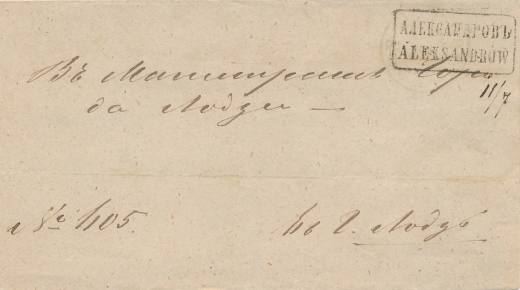 АЛЕКСАНДРОВЪ
ALEKSANDRÓW
Въ Магистратъ Горо
да Лодзи —
11/7
№ 1105.
въ г. Лодзь